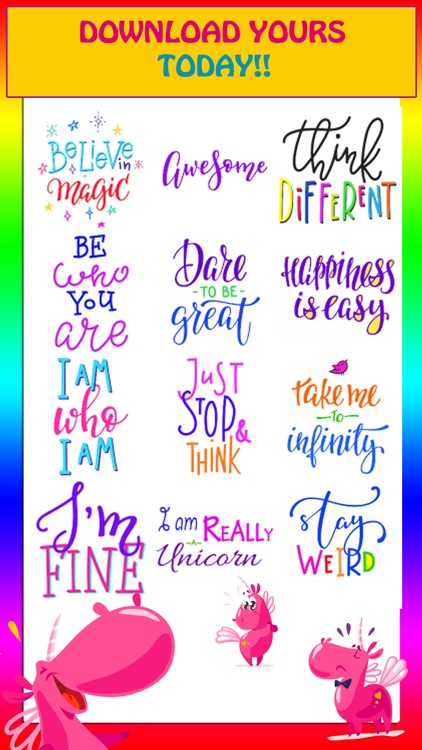 DOWNLOAD YOURS
TODAY!!
BeLieve
in
magic
Awesome
think
DiFFeRENT
BE
who
YOU
are
Dare
- TO BE -
great
Happiness
is easy
I AM
who
I AM
JuST
STOP &
THINK
take me
- to -
infinity
I'm
FINE
I am REALLY
- A -
Unicorn
stay
WEIRD